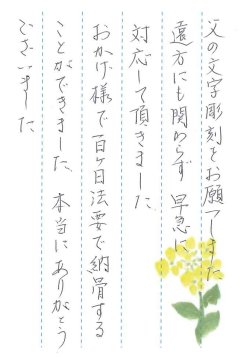 父の文字彫刻をお願いしました
遠方にも関わらず 早急に
対応して頂きました
おかげ様で百ヶ日法要で納骨する
ことができました 本当にありがとう
ございました